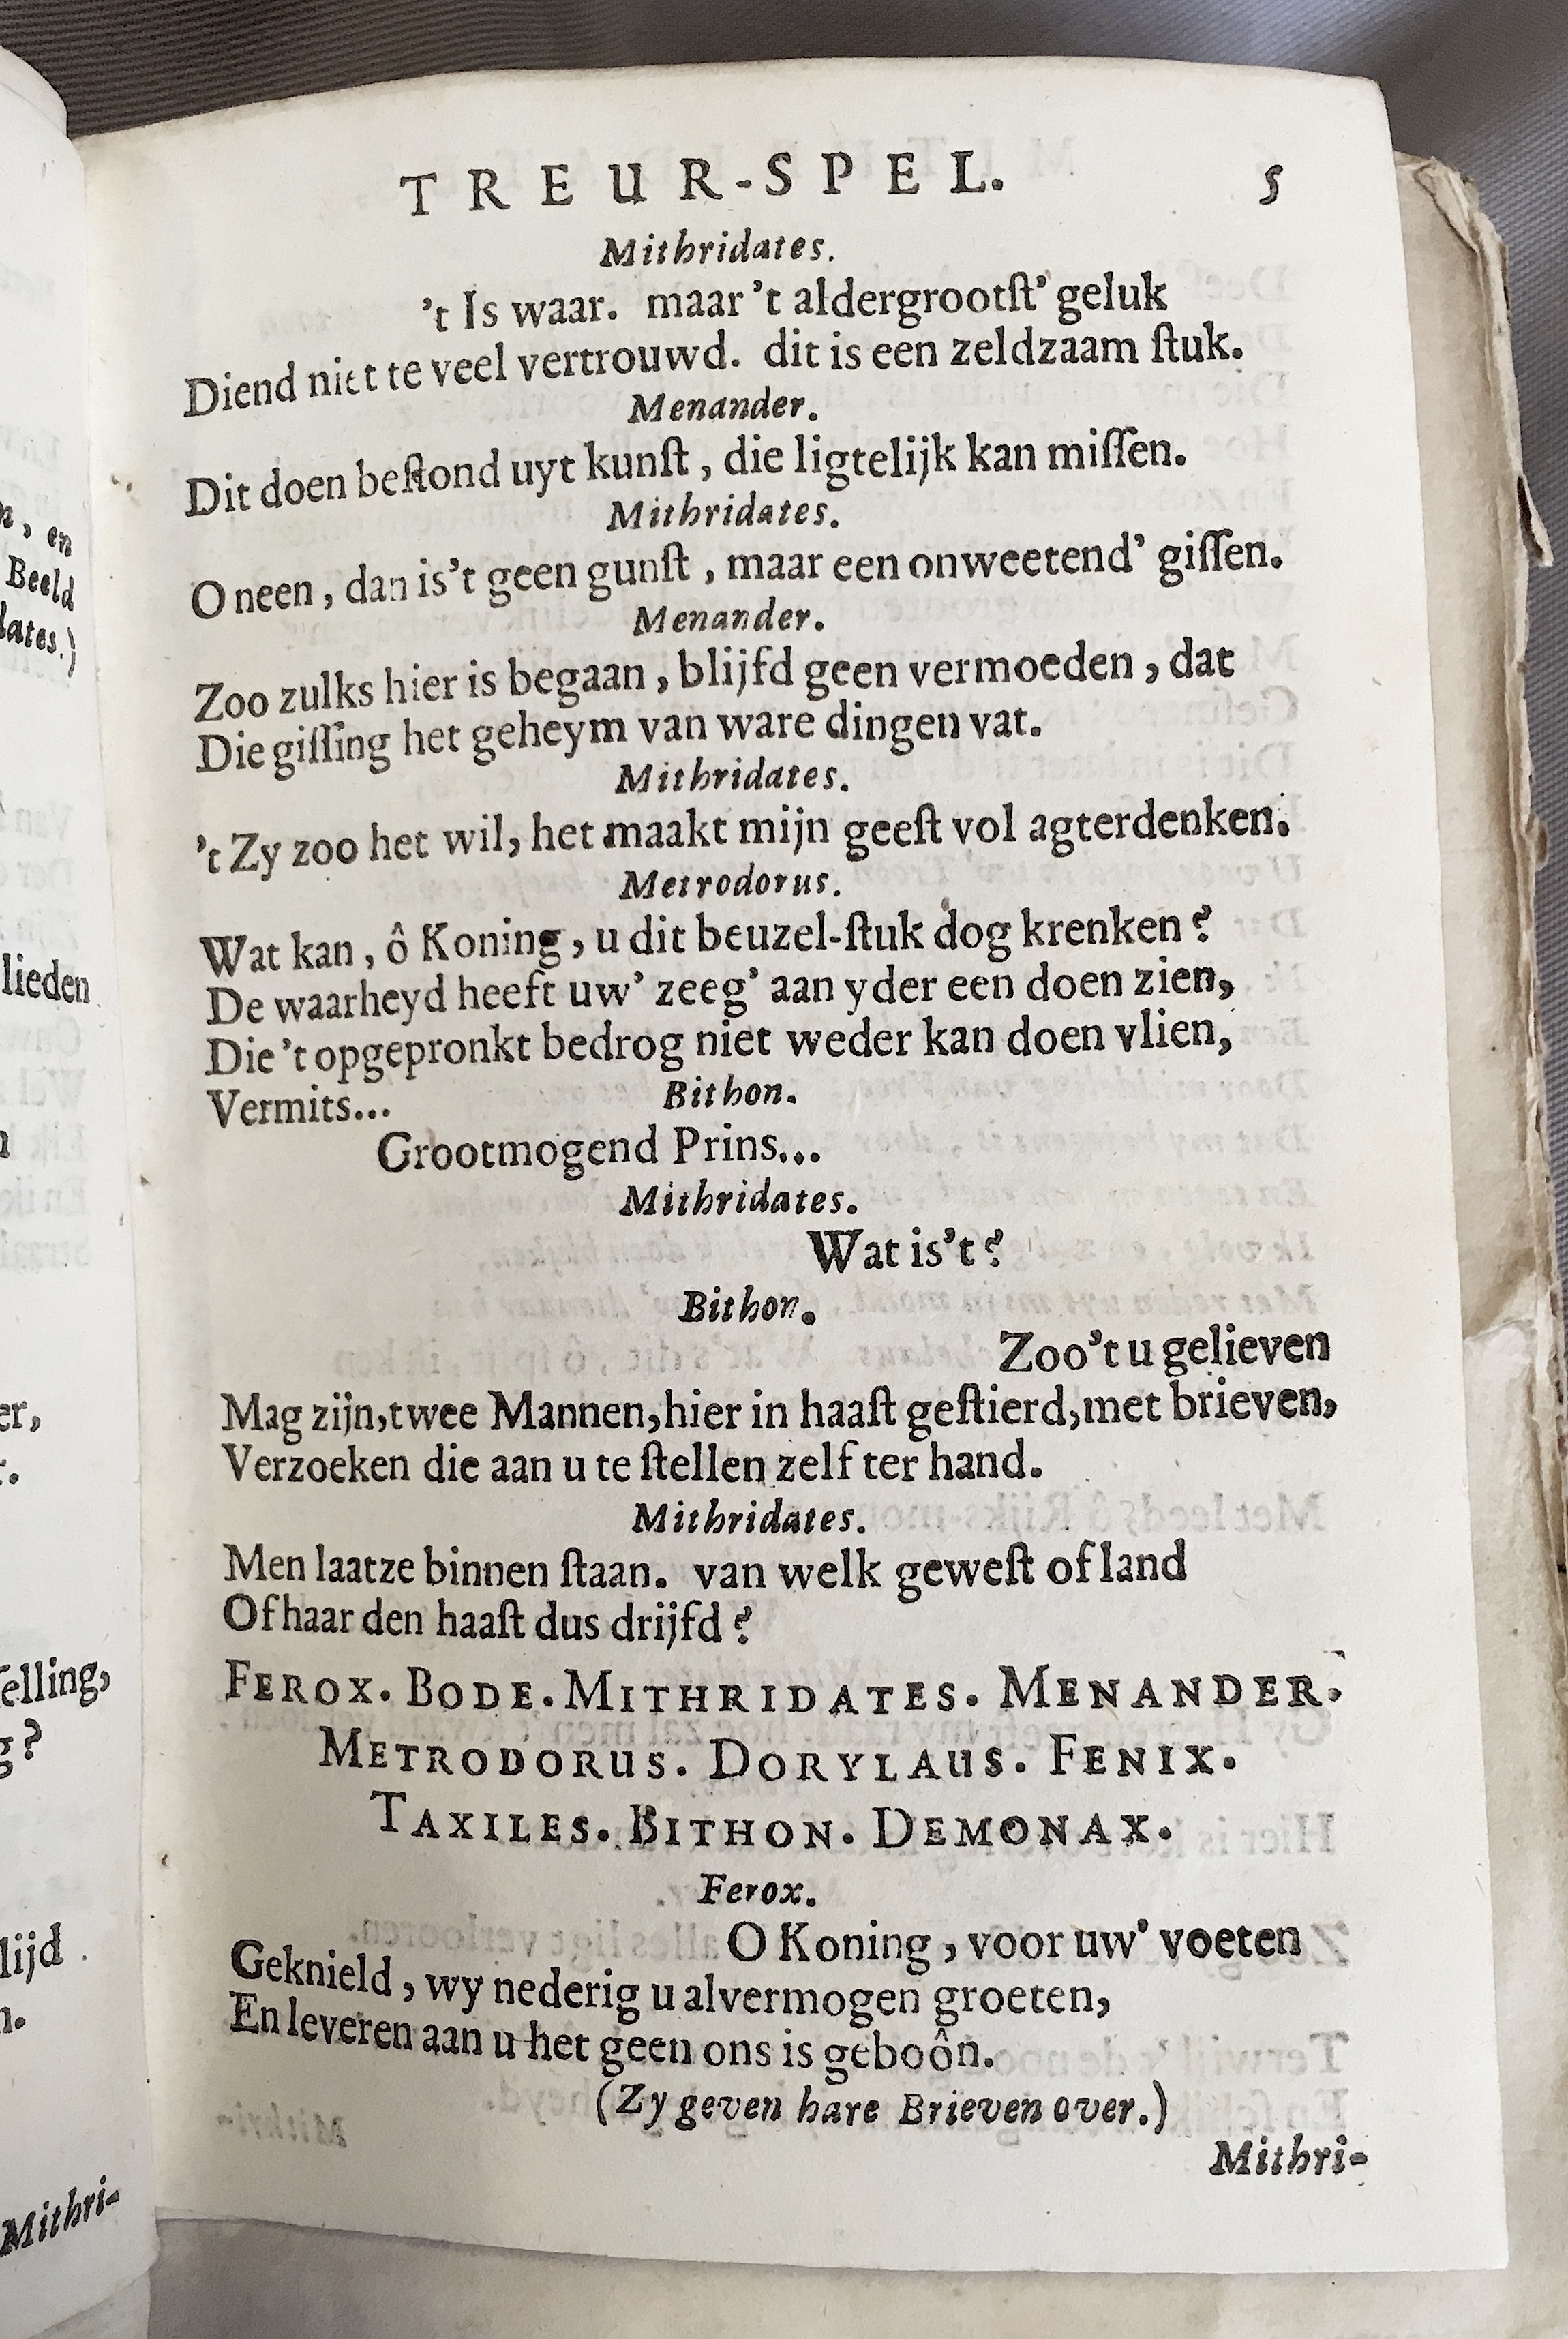 TREUR-SPEL. 5
Mithridates.
't Is waar. maar 't aldergrootſt' geluk
Diend niet te veel vertrouwd. dit is een zeldzaam ſtuk.
Menander.
Dit doen beſtond uyt kunſt, die ligtelijk kan miſſen.
Mithridates.
O neen, dan is't geen gunſt, maar een onweetend' giſſen.
Menander.
Zoo zulks hier is begaan, blijfd geen vermoeden, dat
Die giſſing het geheym van ware dingen vat.
Mithridates.
't Zy zoo het wil, het maakt mijn geeſt vol agterdenken.
Metrodorus.
Wat kan, ô Koning, u dit beuzel-ſtuk dog krenken?
De waarheyd heeft uw' zeeg' aan yder een doen zien,
Die 't opgepronkt bedrog niet weder kan doen vlien,
Vermits...
Bithon.
Grootmogend Prins...
Mithridates.
Wat is't?
Bithon.
Zoo't u gelieven
Mag zijn, twee Mannen, hier in haaſt geſtierd, met brieven,
Verzoeken die aan u te ſtellen zelf ter hand.
Mithridates.
Men laatze binnen ſtaan. van welk geweſt of land
Of haar den haaſt dus drijfd?
FEROX. BODE. MITHRIDATES. MENANDER.
METRODORUS. DORYLAUS. FENIX.
TAXILES. BITHON. DEMONAX.
Ferox.
O Koning, voor uw' voeten
Geknield, wy nederig u alvermogen groeten,
En leveren aan u het geen ons is geboôn.
(Zy geven hare Brieven over.)
Mithri-
en
Beeld
lieden
lijd
Mithri-